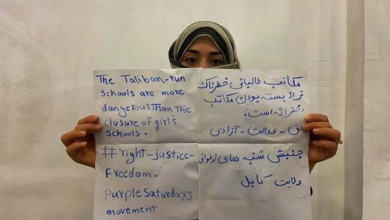 The Taliban-run
schools are more
dangerous Than The
closure of girl's
schools.
#right-justice-
Freedom.
purpleSaturdays
movement
مکاتب طالبانی خطرناک
تر از بسته بودن مکاتب
دخترانه است.
حق - عدالت - آزادی
جنبش شنبه های ارغوانی
ولایت کابل